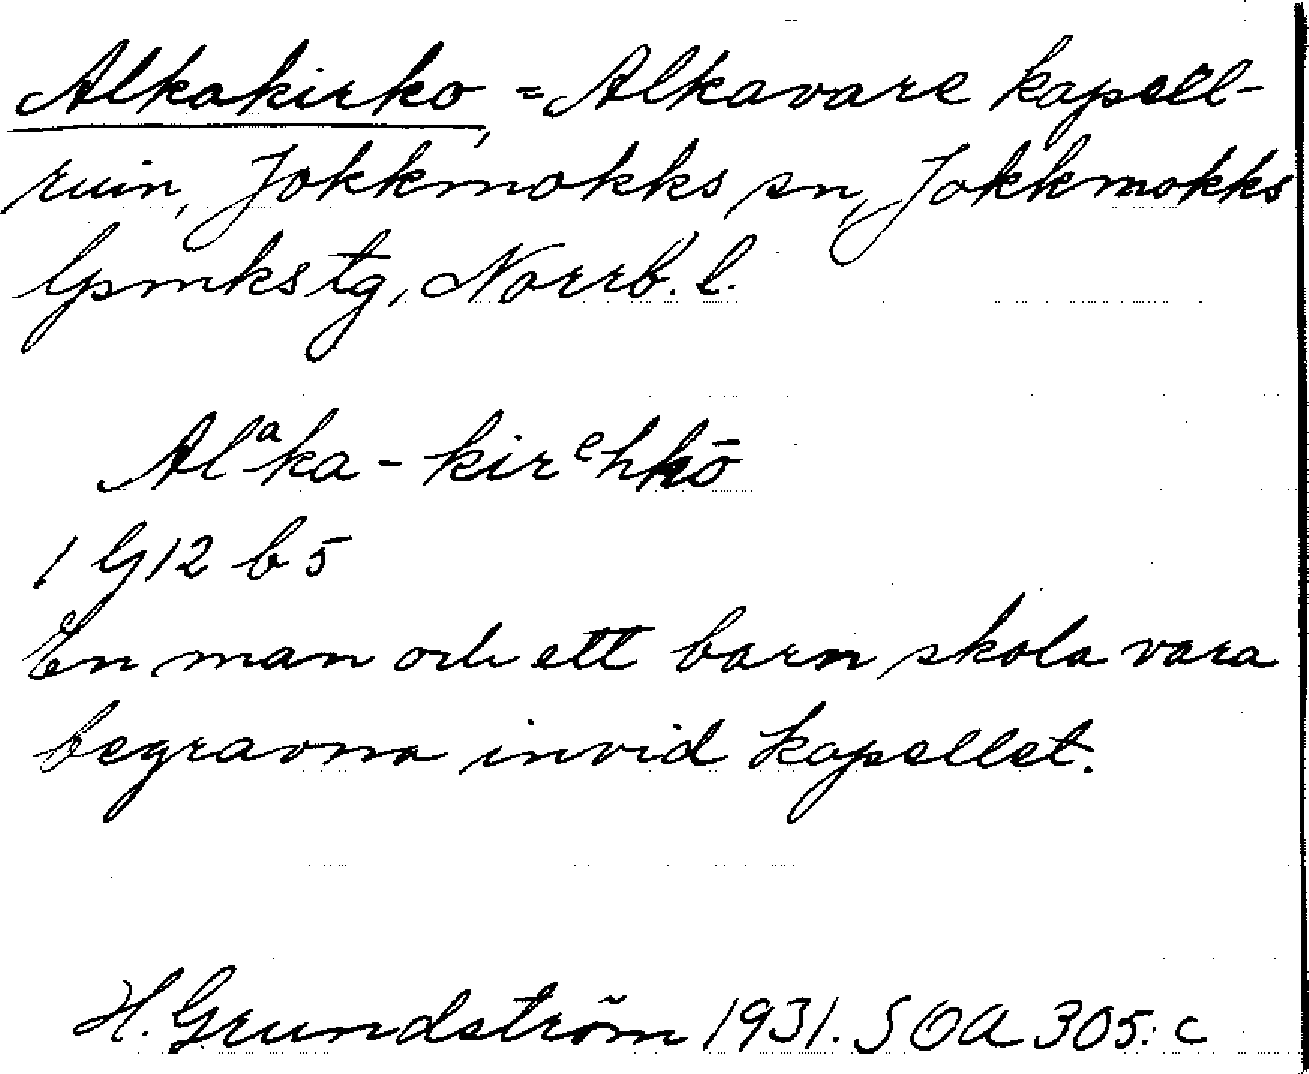 Alkakirko, = Alkavare kapell-
ruin, Jokkmokks sn, Jokkmokks
lpmkstg, Norrb. l.
Alᵃka-kirᵉhkō
1 G12 b 5
En man och ett barn skola vara
begravna invid kapellet.
H. Grundström 1931. SOA 305: c